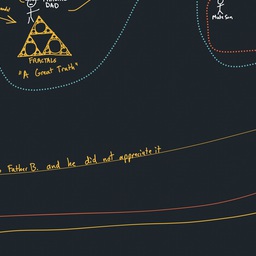 DAD
FRACTALS
"A Great Truth"
Father B. and he did not appreciate it